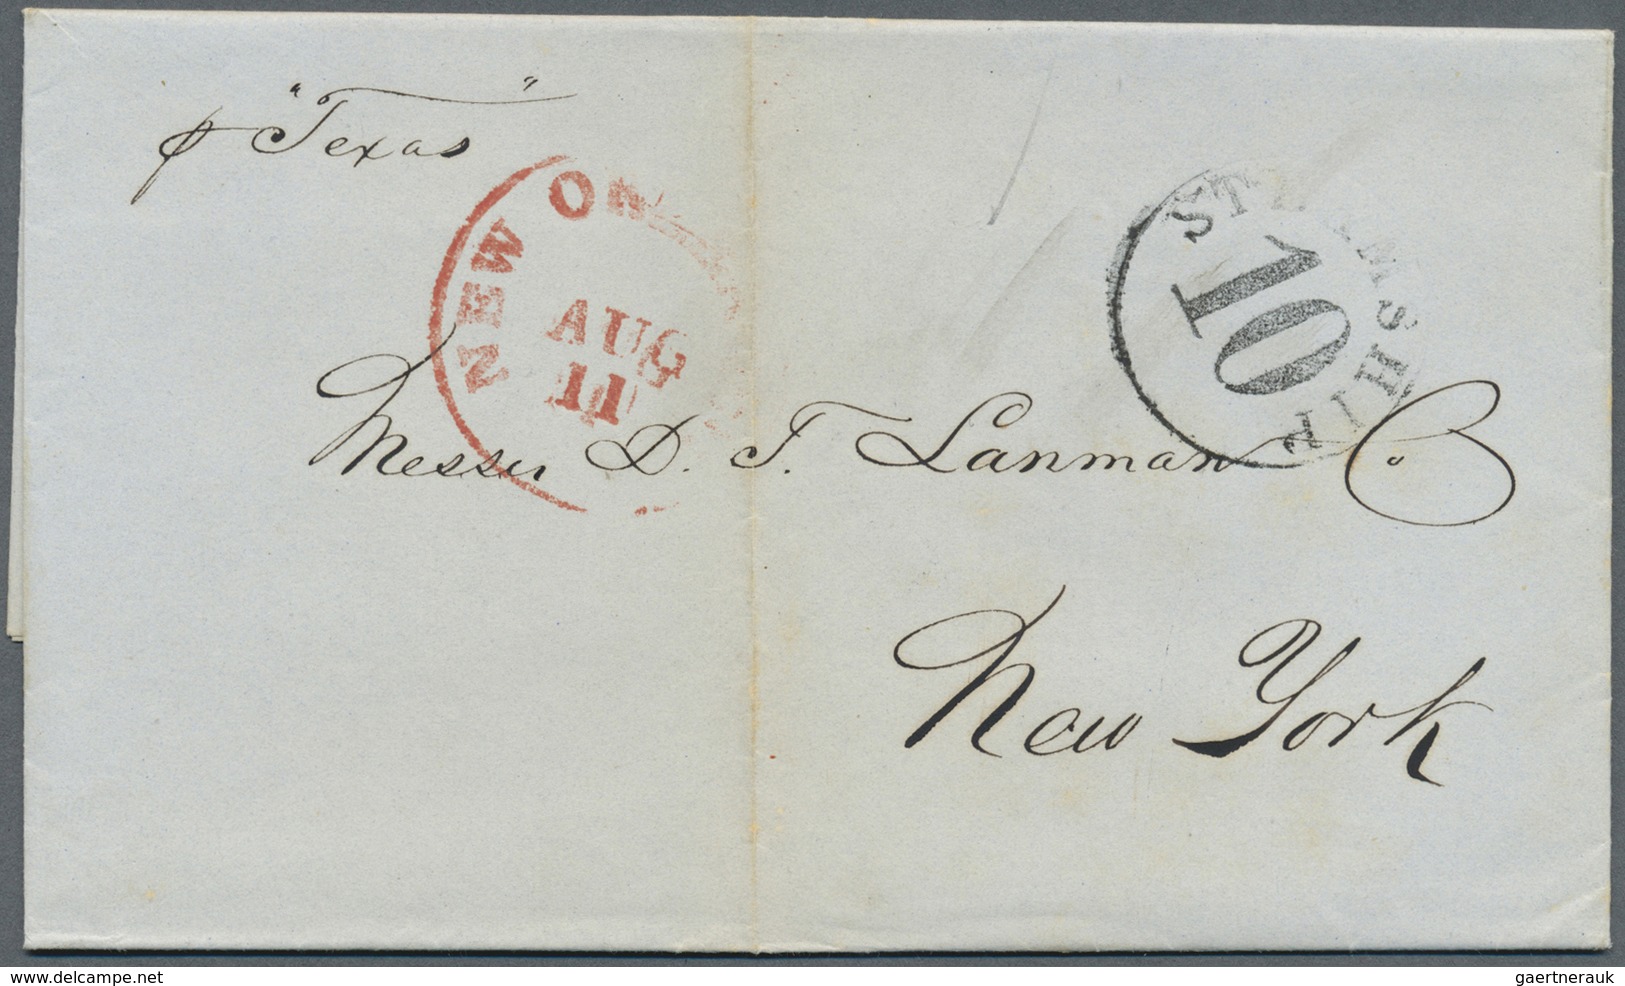 p "Texas"
NEW OR
AUG
11
STEAMSHIP
10
Messrs D. T. Lanman & Co
New York
www.delcampe.net
gaertnerauk